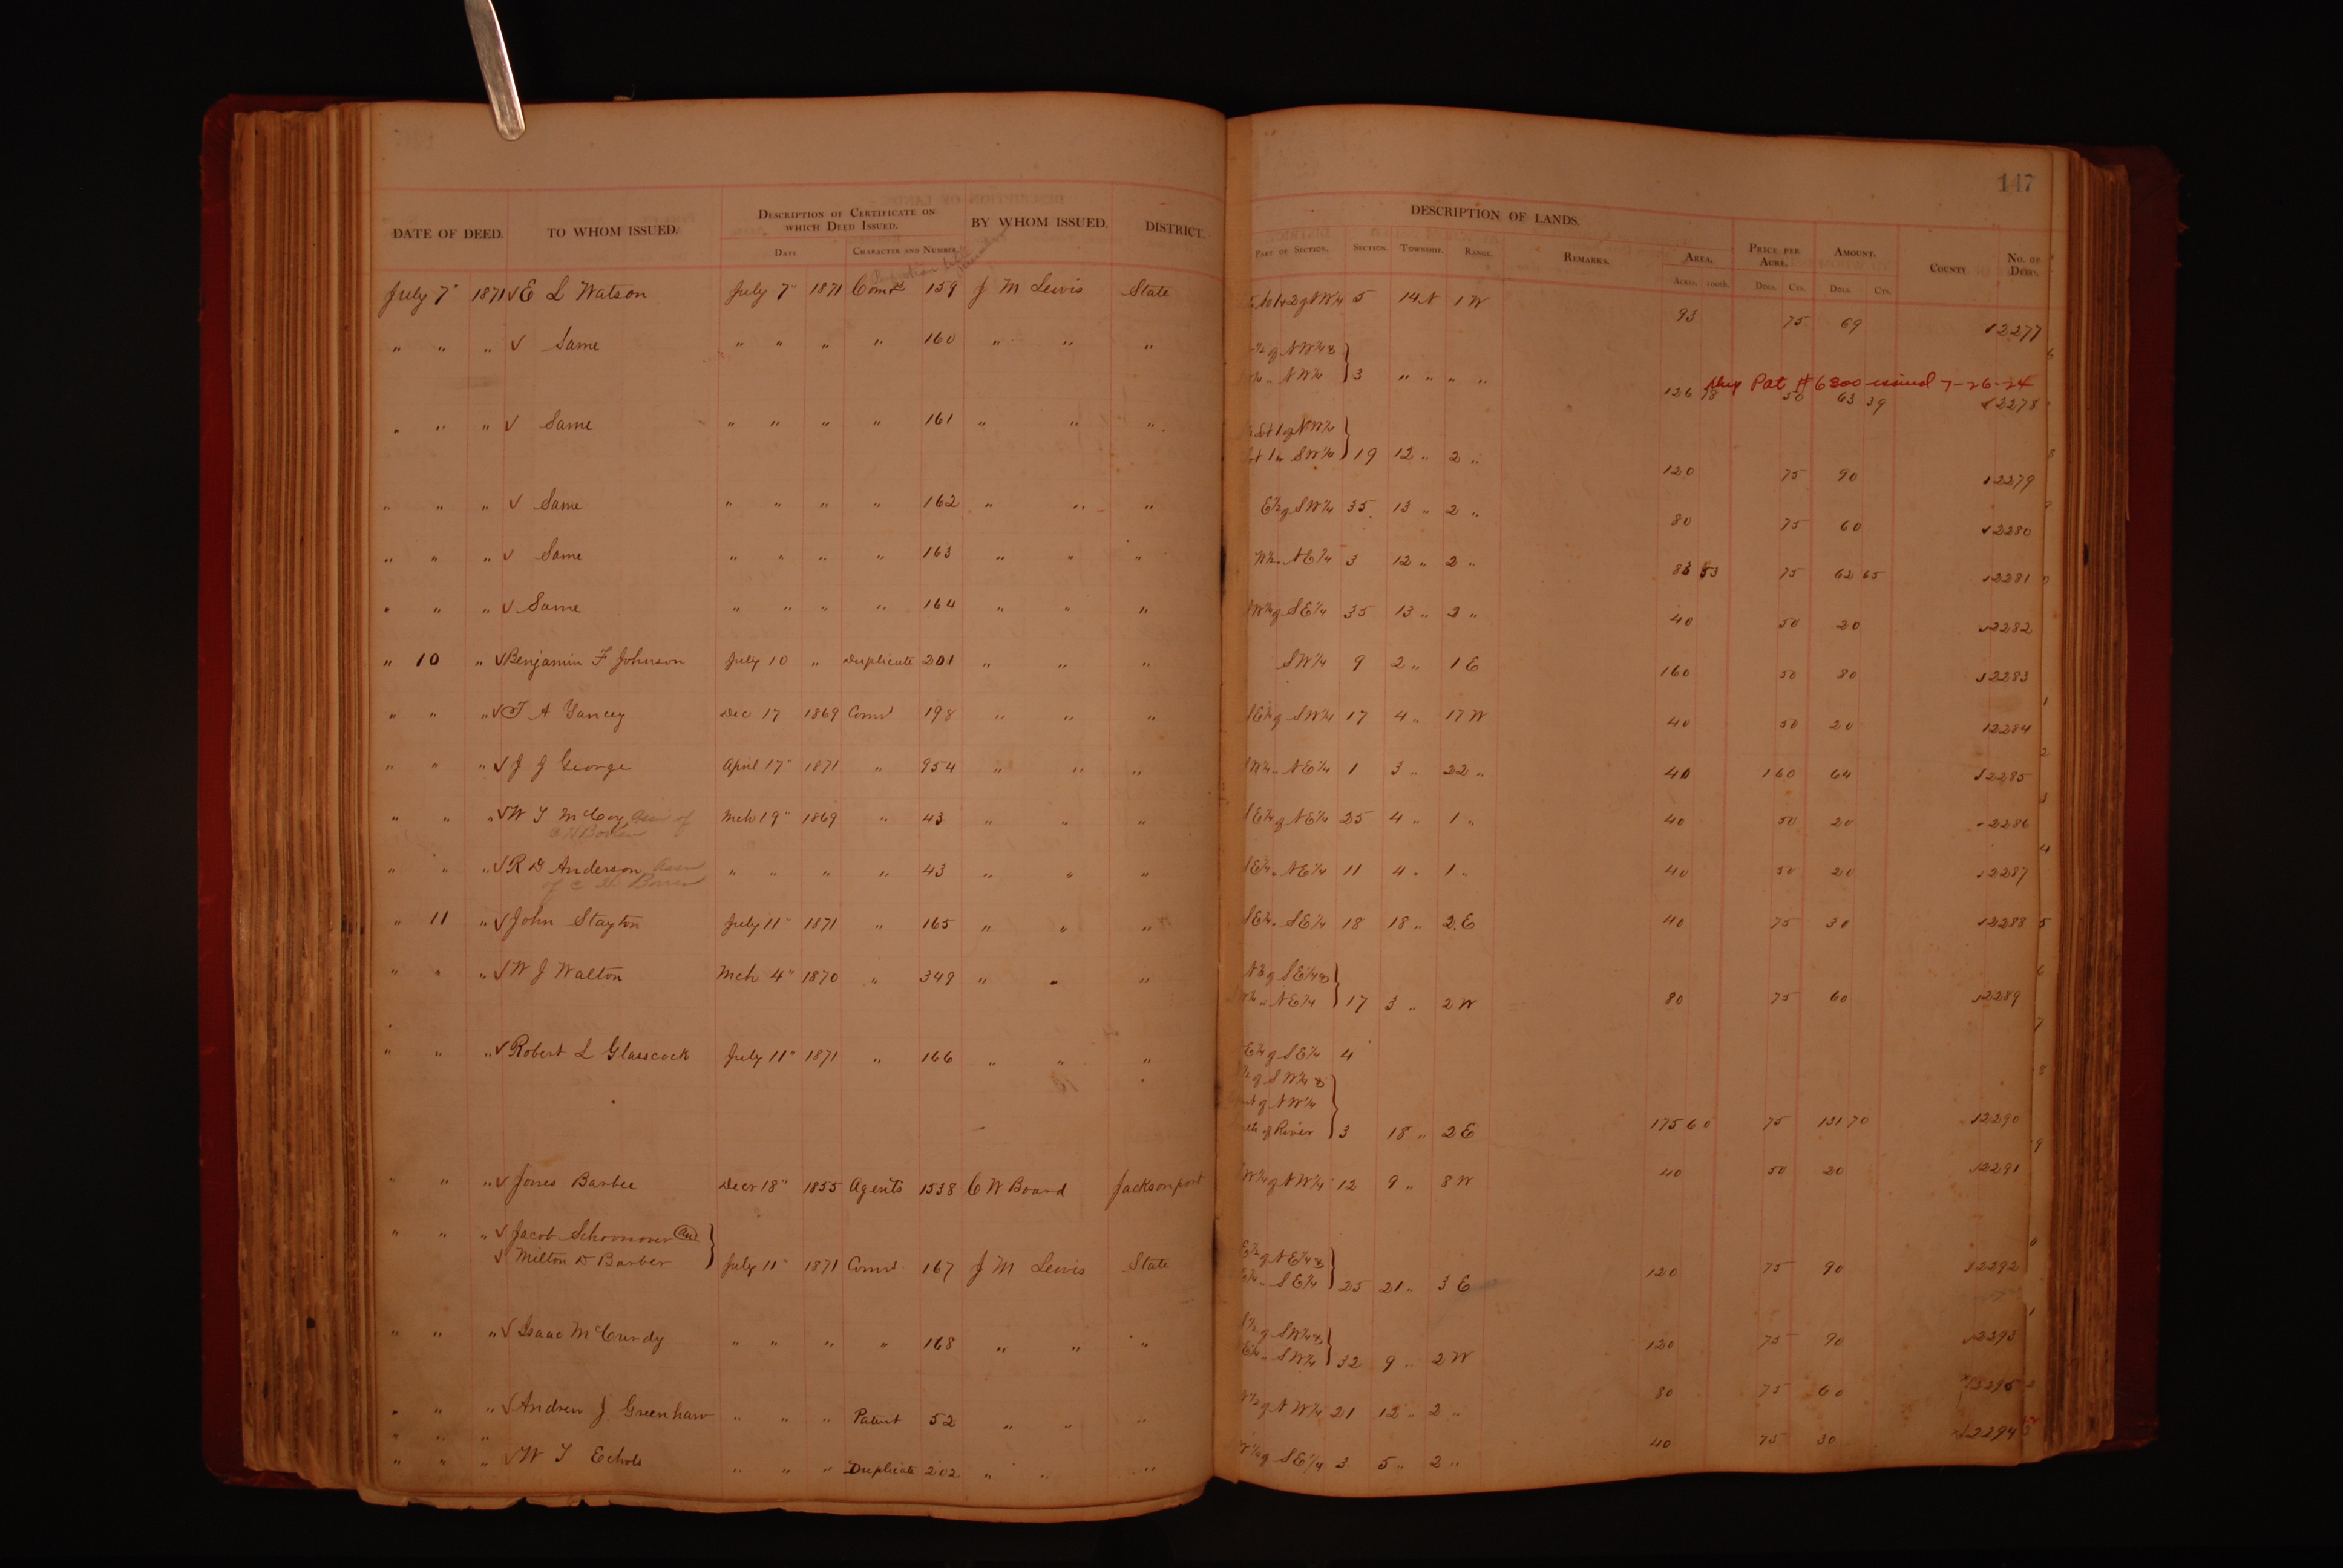 147
DESCRIPTION OF LANDS.
DATE OF DEED. TO WHOM ISSUED. DESCRIPTION OF CERTIFICATE ON WHICH DEED ISSUED. BY WHOM ISSUED. DISTRICT. PRICE PER ACRE. AMOUNT. COUNTY NO. OF DEED.
DATE CHARACTER AND NUMBER PART OF SECTION. SECTION. TOWNSHIP. RANGE. REMARKS. AREA.
ACRES. 100ths. DOLL. CTS. DOLL. CTS.
July 7" 1871 √ E L Watson July 7" 1871 Coms 159 J M Lewis State 2 of NW¼ 5 14 N 1 W 93 75 69 12277
" " " √ Same " " " " 160 " " " ½ of NW¼ &
" NW¼ 3 " " " " 126 78 50 63 39 12278
Dup Pat # 6300 issued 7-26-24
" " " √ Same " " " " 161 " " " Lot 1 of NW¼
Lot 1 " SW¼ 19 12 " 2 " 120 75 90 12279
" " " √ Same " " " " 162 " " " E½ of SW¼ 35 13 " 2 " 80 75 60 12280
" " " √ Same " " " " 163 " " " W½ " NE¼ 3 12 " 2 " 83 53 75 62 65 12281
" " " √ Same " " " " 164 " " " W¼ of SE¼ 35 13 " 2 " 40 50 20 12282
" 10 " √ Benjamin F Johnson July 10 " Duplicate 201 " " " SW¼ 9 2 " 1 E 160 50 80 12283
" " " √ T A Yancey Dec 17 1869 Coms 198 " " " SE¼ of SW¼ 17 4 " 17 W 40 50 20 12284
" " " √ J J George April 17" 1871 " 954 " " " W¼ " NE¼ 1 3 " 22 " 40 1 60 64 12285
" " " √ W T McCoy Assn of Mch 19" 1869 " 43 " " " SE¼ of NE¼ 25 4 " 1 " 40 50 20 12286
C H Bowen
" " " √ R D Anderson Assn " " " " 43 " " " SE¼ " NE¼ 11 4 " 1 " 40 50 20 12287
of C H Bowen
" 11 " √ John Stayton July 11" 1871 " 165 " " " SE¼ " SE¼ 18 18 " 2 E 40 75 30 12288
" " " √ W J Walton Mch 4" 1870 " 349 " " " of SE¼ &
" NE¼ 17 3 " 2 W 80 75 60 12289
" " " √ Robert L Glasscock July 11" 1871 " 166 " " " E¼ of SE¼ 4
½ of SW¼ &
of NW¼
of River 3 18 " 2 E 175 60 75 131 70 12290
" " " √ Jones Barbee Decr 18" 1855 Agents 1538 C W Board Jacksonport W¼ of NW¼ 12 9 " 8 W 40 50 20 12291
" " " √ Jacob Schoonover and
√ Milton D Barber July 11" 1871 Coms 167 J M Lewis State E½ of NE¼ &
E¼ " SE¼ 25 21 " 3 E 120 75 90 12292
" " " √ Isaac McCurdy " " " " 168 " " " ½ of SW¼ &
E¼ " SW¼ 32 9 " 2 W 120 75 90 12293
" " " √ Andrew J. Greenhaw " " " Patent 52 " " " ½ of NW¼ 21 12 " 2 " 80 75 60 12295
" " "
" " " √ W T Echols " " " Duplicate 202 " " " W¼ of SE¼ 3 5 " 2 " 40 75 30 12294